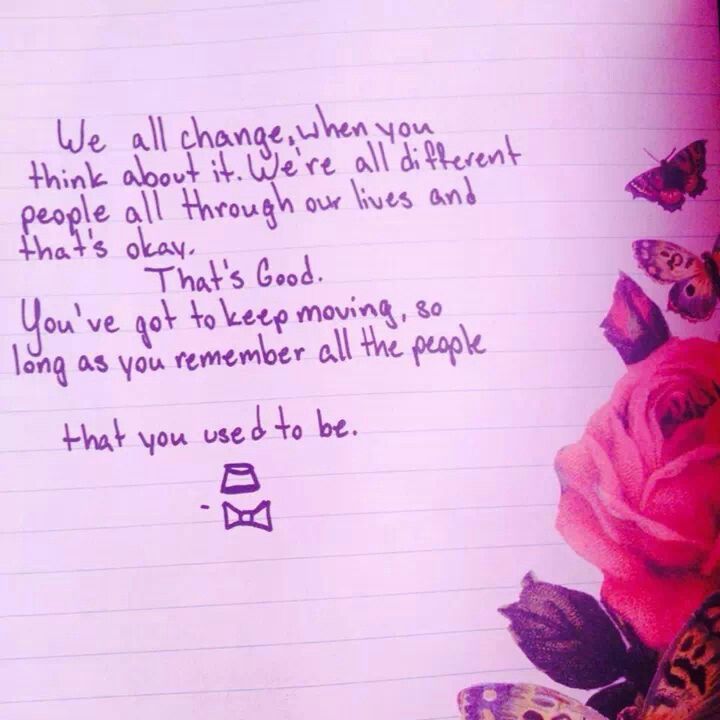 We all change, when you
think about it. We're all different
people all through our lives and
that's okay.
That's Good.
You've got to keep moving, so
long as you remember all the people
that you used to be.